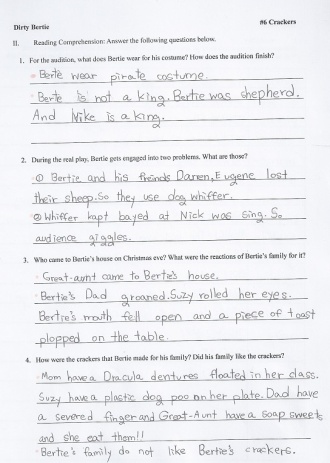 Dirty Bertie #6 Crackers
II. Reading Comprehension: Answer the following questions below.
1. For the audition, what does Bertie wear for his costume? How does the audition finish?
Berte wear pirate costume.
Berte is not a king. Bertie was shepherd.
And Nike is a king.
2. During the real play, Bertie gets engaged into two problems. What are those?
① Bertie and his friends Darren, Eugene lost
their sheep. So they use dog whiffer.
② Whiffer kapt bayed at Nick was sing. So
audience giggles.
3. Who came to Bertie's house on Christmas eve? What were the reactions of Bertie's family for it?
Great-aunt came to Bertie's house.
Bertie's Dad groaned. Suzy rolled her eyes.
Bertie's mouth fell open and a piece of toast
plopped on the table.
4. How were the crackers that Bertie made for his family? Did his family like the crackers?
Mom have a Dracula dentures floated in her class.
Suzy have a plastic dog poo on her plate. Dad have
a severed finger and Great-Aunt have a soap sweets
and she eat them!!
Bertie's family do not like Bertie's crackers.